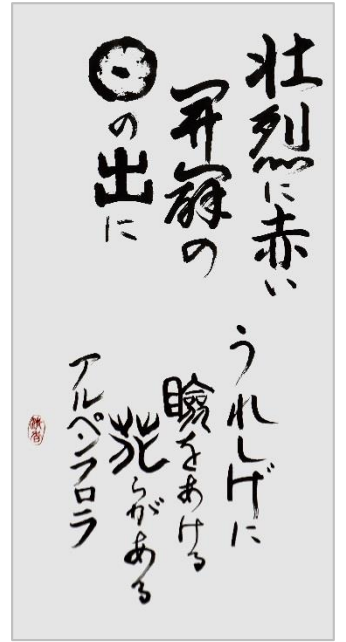 壮烈に赤い
開闢の
日の出に
うれしげに
瞼をあける
花らがある
アルペンフロラ